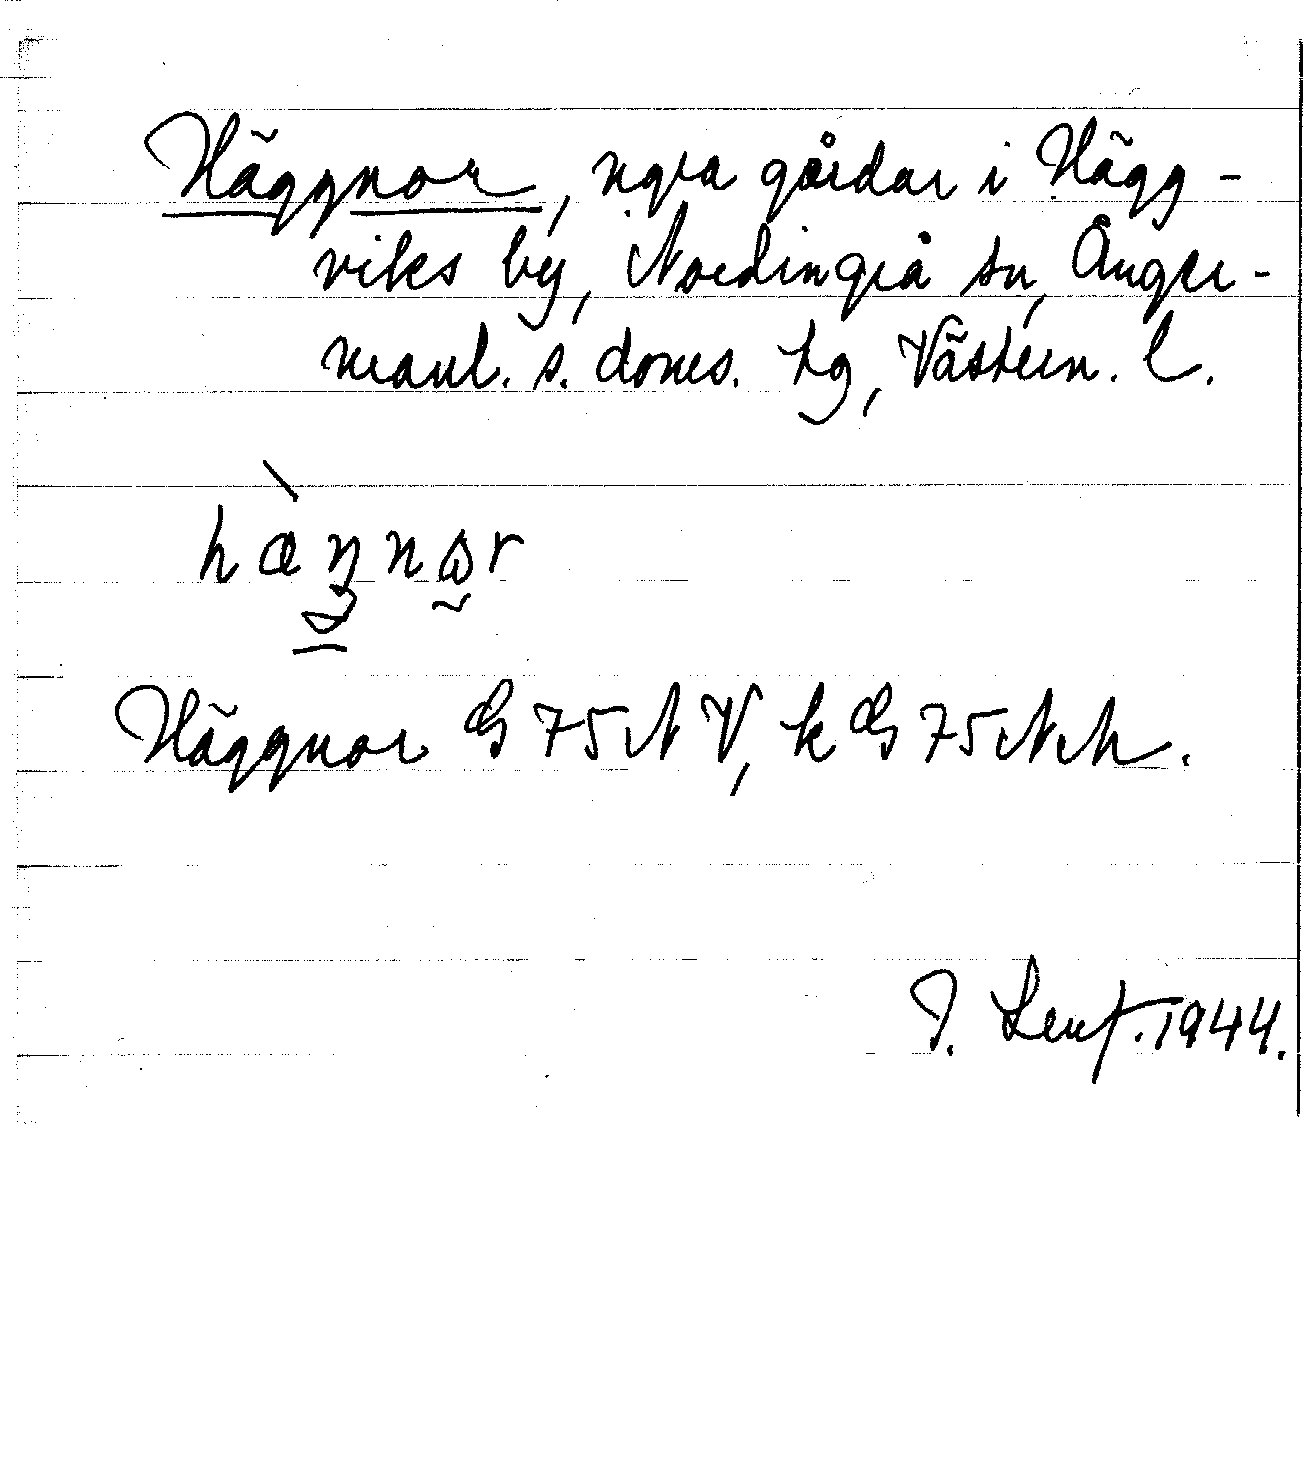 Häggnor, ngra gårdar i Hägg-
viks by, Nordingrå sn, Ånger-
manl. s. doms. tg, Västern. l.
Häggnor G 75 N V, k G 75 N M.
1944.